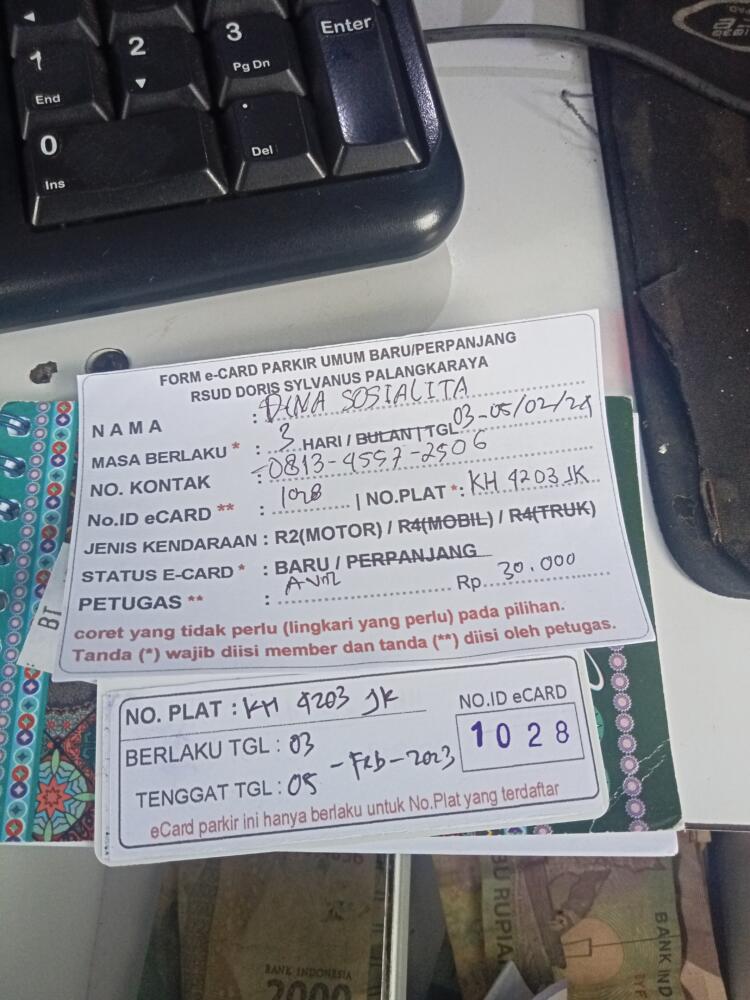 1
End
2
3
Pg Dn
Enter
0
Ins
.
Del
FORM e-CARD PARKIR UMUM BARU/PERPANJANG
RSUD DORIS SYLVANUS PALANGKARAYA
NAMA : DINA SOSIALITA
MASA BERLAKU * : 3 HARI / BULAN | TGL 03-05/02/23
NO. KONTAK : 0813-4557-2506
No.ID eCARD ** : 1028 | NO.PLAT *: KH 4203 JK
JENIS KENDARAAN : R2(MOTOR) / R4(MOBIL) / R4(TRUK)
STATUS E-CARD * : BARU / PERPANJANG
PETUGAS ** : Rp 30.000
coret yang tidak perlu (lingkari yang perlu) pada pilihan.
Tanda (*) wajib diisi member dan tanda (**) diisi oleh petugas.
BT
NO. PLAT : KH 4203 JK
NO.ID eCARD
1028
BERLAKU TGL : 03
TENGGAT TGL : 05 - Feb - 2023
eCard parkir ini hanya berlaku untuk No.Plat yang terdaftar
BANK INDONESIA
2000
BU RUPIAH
BANK IND